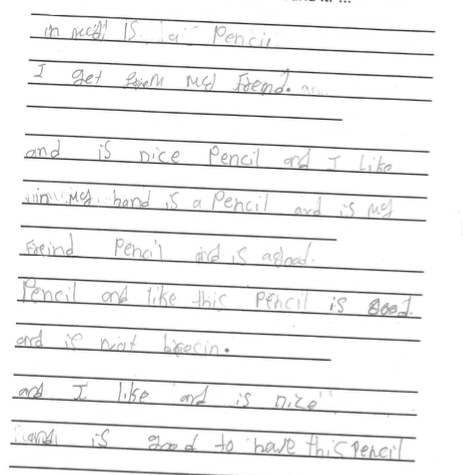 in my IS a Pencil
I get from my Frend.
and is nice Pencil and I Like
in my hand is a Pencil and is my
freind Pencil and is agood.
Pencil and like this Pencil is good.
and is not
and I like and is nice
is good to have this Pencil